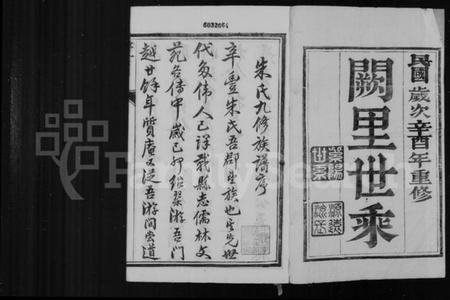 6032661
民國歲次辛酉年重修
闕里世乘
朱氏九修族譜序
辛豐朱氏吾郡望族也其先世
代多偉人已詳載縣志儒林文
苑各傳中歲己卯紹棻游吾門
越廿餘年質庵又從吾游間嘗道
FamilySearch